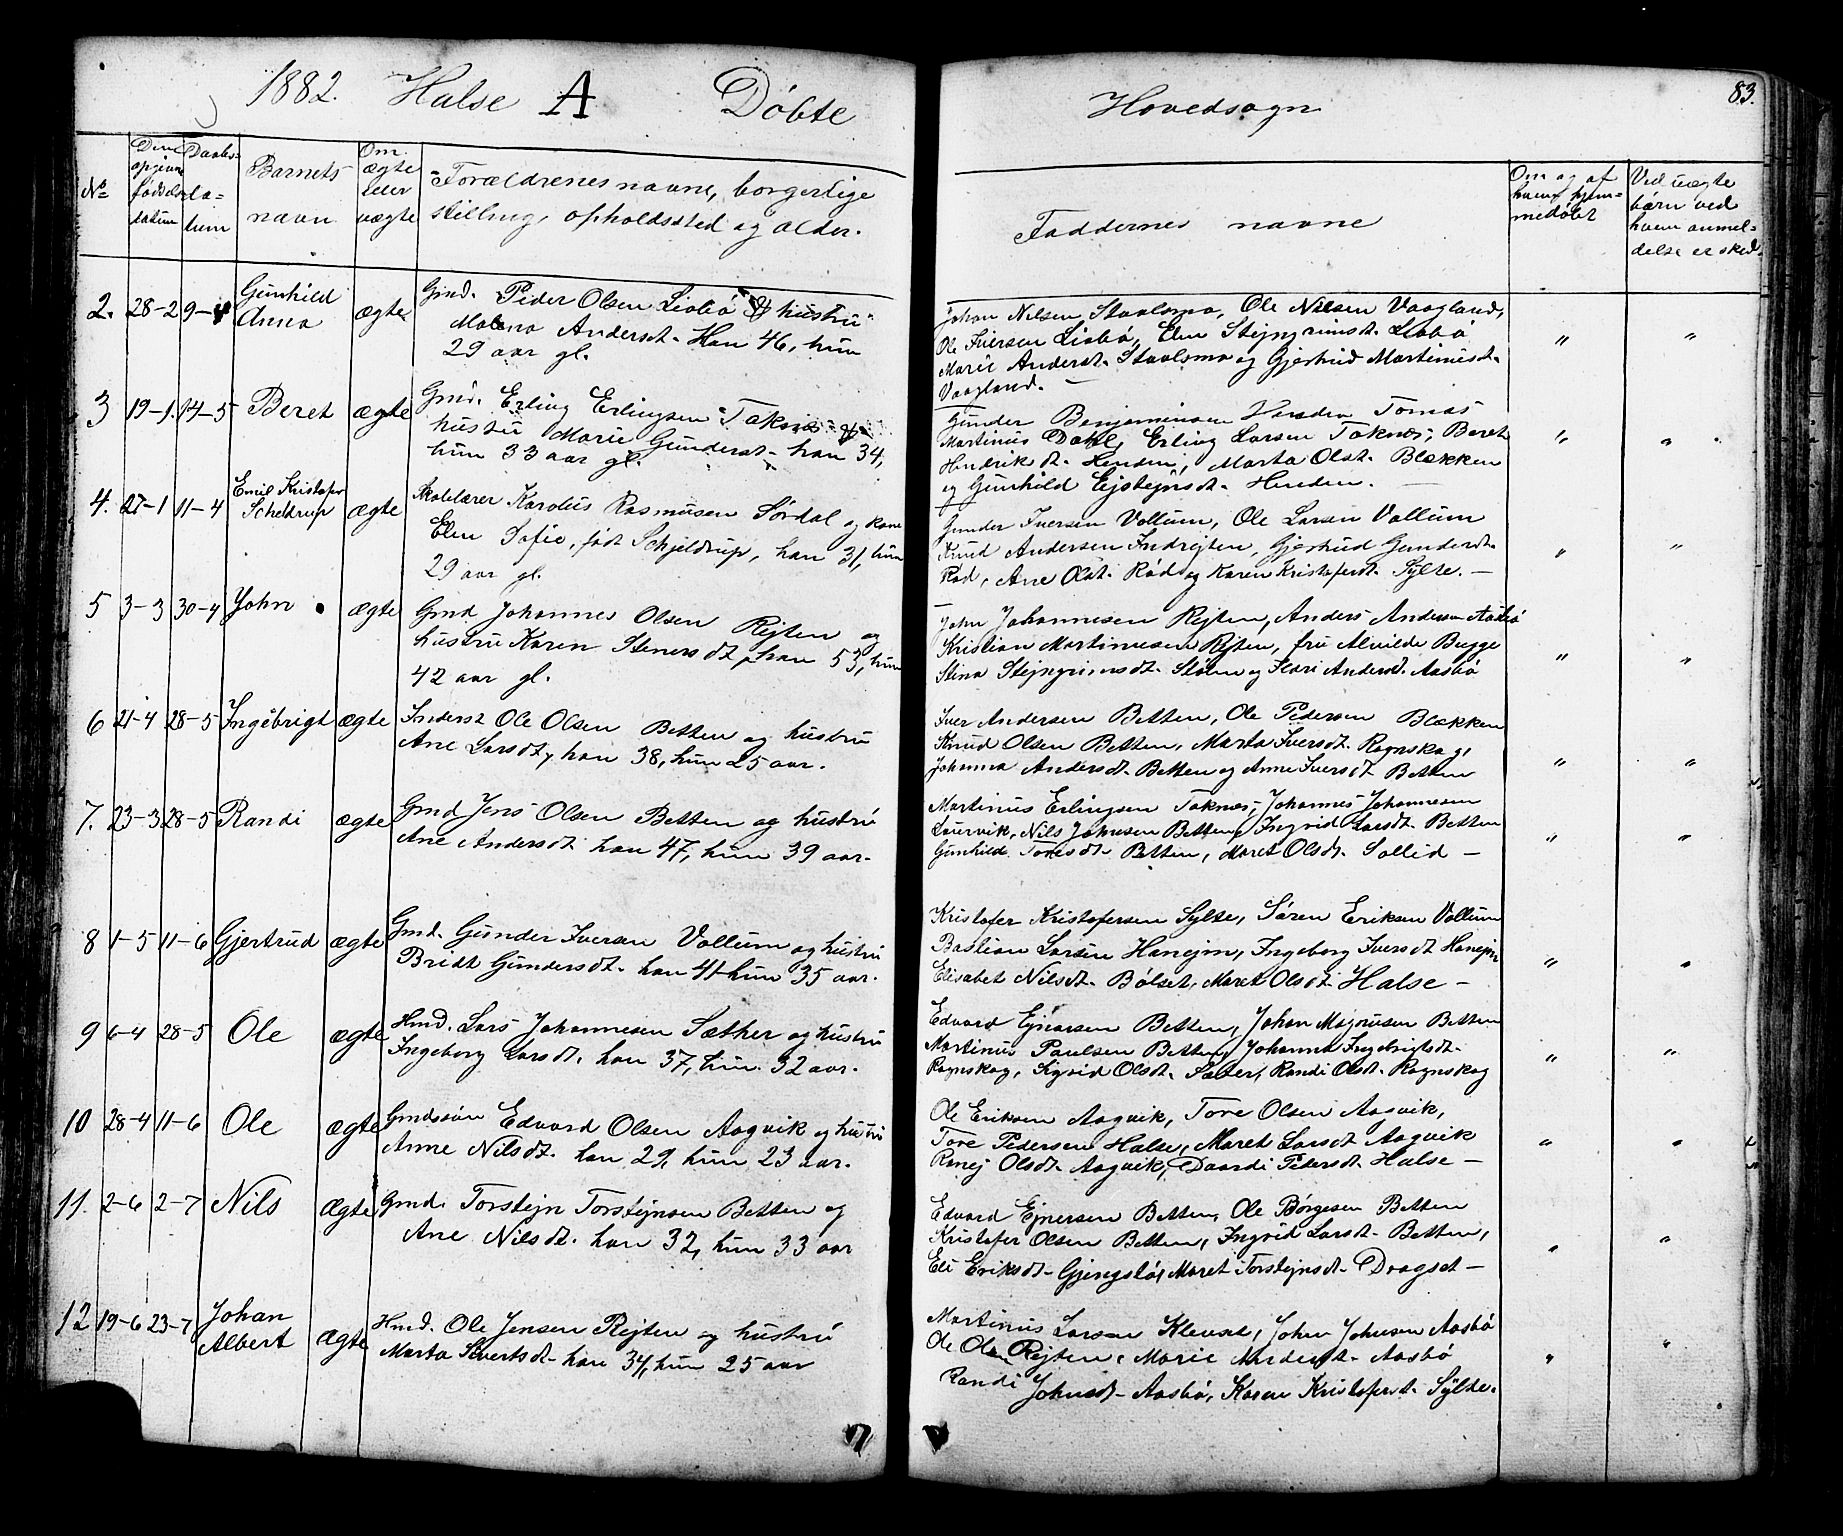 1882. Halse A Døbte
Hovedsogn
83.
No
Den opgivne fødselsdatum
Daabsdatum
Barnets navn
Om ægte eller uægte
Forældrenes navne, borgerlige
stilling, opholdssted og alder.
Faddernes navne
Om og af hvem hjemmedøbt
Ved uægte børn ved hvem anmeldelse er sked.
2. 28-2 9-4 Gunhild Anna ægte
Gmd. Peder Olsen Liabø & hustru
Malena Andersdt. Han 46, hun
29 aar gl.
Johan Nilsen Staaloma, Ole Nilsen Vaagland,
Ole Iversen Liabø, Elen Stejngrimsdt. Liabø
Marie Andersdt. Staaloma og Gjertrud Martinusdt.
Vaagland. —
" "
3 19-1. 14-5 Beret ægte
Gmd. Erling Erlingsen Taknæs &
hustru Marie Gundersdt. han 34,
hun 33 aar gl.
Gunder Benjaminsen Henden Tomas
Martinus Dahl, Erling Larsen Taknæs, Beret
Hendriksdt. Henden, Marta Olsdt. Blækken
og Gunhild Ejstejnsdt. Henden. —
" "
4. 27-1 11-4 Emil Kristofer Scheldrup ægte
Skolelærer Karolus Rasmusen Sørdal og kone
Elen Sofie, født Schjeldrup, han 31, hun
29 aar gl.
Gunder Iversen Vollum, Ole Larsen Vollum
Knud Andersen Indrejten, Gjertrud Gundersdt.
Rød, Ane Olsdt. Rød og Karen Kristofersdt. Sylte. —
" "
5 3-3 30-4 John ægte
Gmd Johannes Olsen Rejten og
hustru Karen Stenersdt, han 53, hun
42 aar gl.
John Johannesen Rejten, Anders Andersen Aasbø
Kristian Martinusen Rejten, fru Alvilde Bugge
Stina Stejngrimsdt. Stølen og Kari Andersdt. Aasbø
" "
6 21-4 28-5 Ingebrigt ægte
Inderst Ole Olsen Betten og hustru
Ane Larsdt, han 38, hun 25 aar.
Iver Andersen Betten, Ole Pedersen Blækken
Knud Olsen Betten, Marta Iversdt. Rognskog,
Johanna Andersdt. Betten og Anne Iversdt Betten
" "
7. 23-3 28-5 Randi ægte
Gmd Jens Olsen Betten og hustru
Ane Andersdt. han 47, hun 39 aar.
Martinus Erlingsen Taknæs, Johannes Johannesen
Laurvik, Nils Johnsen Betten, Ingrid Larsdt. Betten
Gunhild Toresdt. Betten, Maret Olsdt. Sollid —
" "
8 1-5 11-6 Gjertrud ægte
Gmd. Gunder Iversen Vollum og hustru
Bridt Gundersdt. han 41 hun 35 aar.
Kristofer Kristofersen Sylte, Søren Eriksen Vollum
Bastian Larsen Hanejm, Ingeborg Iversdt Hanejm
Elisabet Nilsdt. Bølset, Maret Olsdt. Halse —
" "
9 6-4 28-5 Ole ægte
Hmd. Lars Johannesen Sæther og hustru
Ingeborg Larsdt. han 37, hun 32 aar.
Edvard Ejnarsen Betten, Johan Magnusen Betten
Martinus Paulsen Betten, Johanna Ingebrigtsdt.
Rognskog, Sigrid Olsdt. Sæter, Randi Olsdt. Rognskog
" "
10 28-4 11-6 Ole ægte
Gmdssøn Edvard Olsen Aagvik og hustru
Anne Nilsdt. han 29, hun 23 aar.
Ole Eriksen Aagvik, Tore Olsen Aagvik,
Tore Pedersen Halse, Maret Larsdt Aagvik
Ranej Olsdt. Aagvik, Daardi Pedersdt. Halse —
" "
11. 2-6 2-7 Nils ægte
Gmd. Torstejn Torstejnsen Betten og
Ane Nilsdt. han 32, hun 33 aar
Edvard Ejnersen Betten, Ole Børgesen Betten
Kristofer Olsen Betten, Ingrid Larsdt. Betten,
Eli Eriksdt. Gjengstø, Maret Torstejnsdt. Dragset —
" "
12 19-6 23-7 Johan Albert ægte
Hmd. Ole Jensen Rejten og hustru
Marta Sivertsdt. han 34, hun 25 aar
Martinus Larsen Klevset, John Johnsen Aasbø
Ole Olsen Rejten, Marie Andersdt. Aasbø
Randi Johnsdt. Aasbø, Karen Kristofersdt. Sylte.
" "